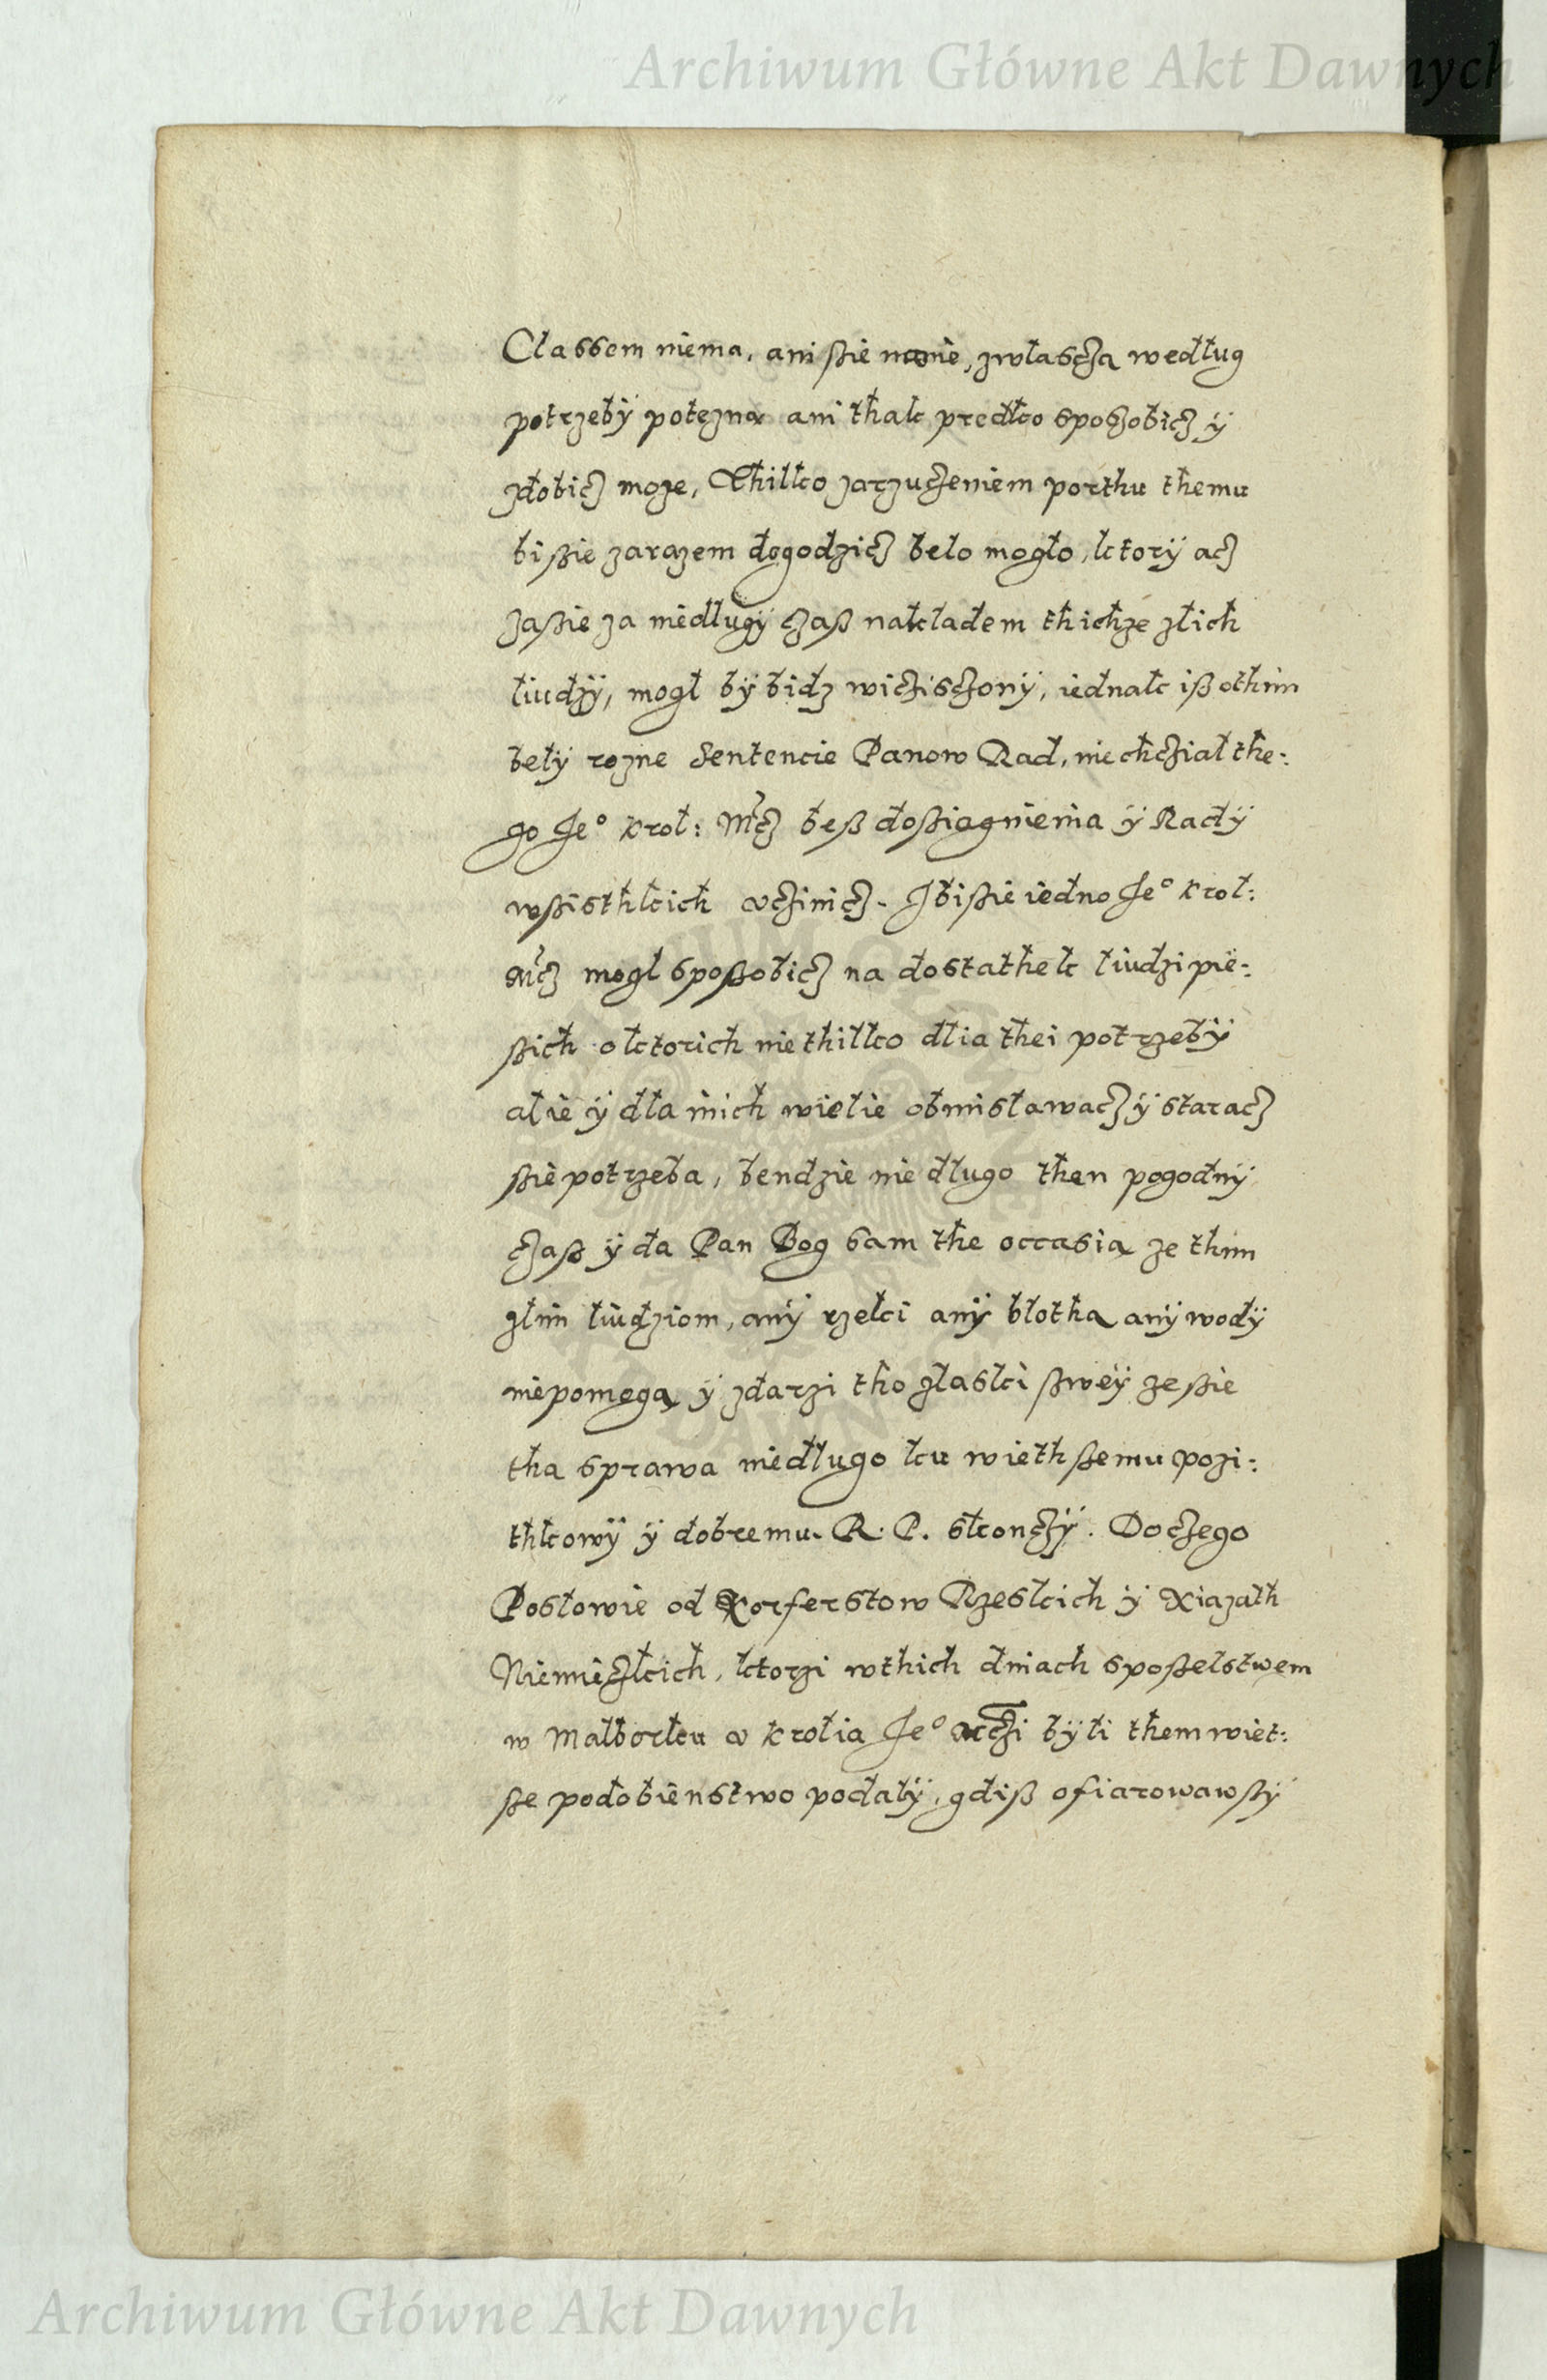 Archiwum Główne Akt Dawnych
Classem niema, ani ßie nanie, zwłascza według
potrzeby potezna ani thak predko sposobicz ÿ
zdobicz moze, Thilko zarzuczeniem porthu themu
bi ßie zarazem dogodzicz beło mogło, ktorÿ acz
zaßie za niedługÿ czaß nakładem thichze złich
liudzÿ, mogł bÿ bidz wicziscżonÿ, iednak iß othim
bełÿ rozne Sentencie Panow Rad, niechcział the:
go Je° krol: Mcz beß doßiagnienia ÿ Radÿ
wßisthkich vczinicz. Jbi ßie iedno Je° krol:
Mcz mogł spoßobicz na dostathek liudzi pie:
ßich o ktorich niethilko dlia thei potrzebÿ
alie ÿ dla inich wielie obmisławacz ÿ staracz
ßie potrzeba, bendzie niedługo then pogodnÿ
czaß ÿ da Pan Bog sam the occasią ze thim
złim liudziom, anÿ rzeki anÿ błotha anÿ wodÿ
niepomogą ÿ zdarzi tho złaski ßweÿ ze ßie
tha sprawa niedługo ku wiethßemu pozi:
thkowÿ ÿ dobremu R. P. skonczÿ. Do czego
Posłowie od Korferstow Rzeskich ÿ Xiazath
Niemieczkich, ktorzi wthich dniach spoßelstwem
w Malborku v krolia Je° Mczi bÿli them wiet:
ße podobienstwo podałÿ, gdiß ofiarowawßÿ
Archiwum Główne Akt Dawnych